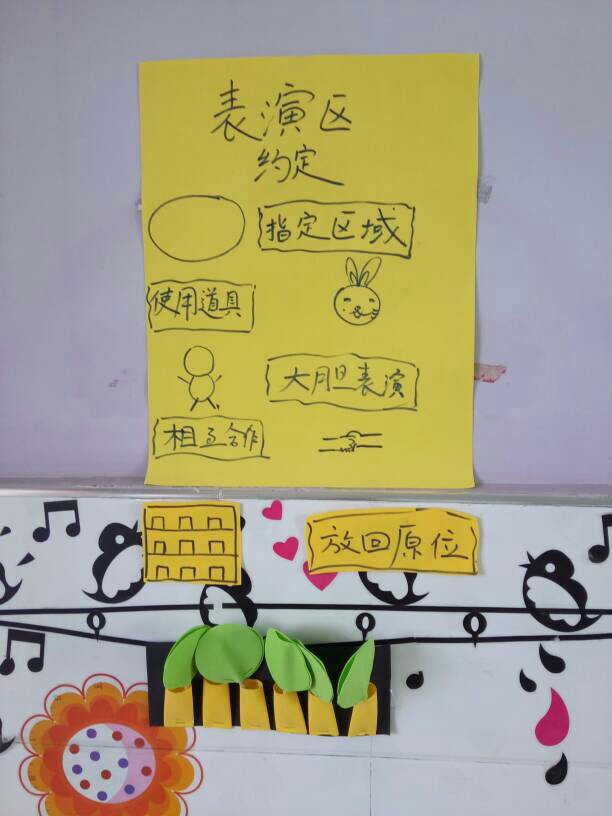 表演区
约定
指定区域
使用道具
大胆表演
相互合作
放回原位